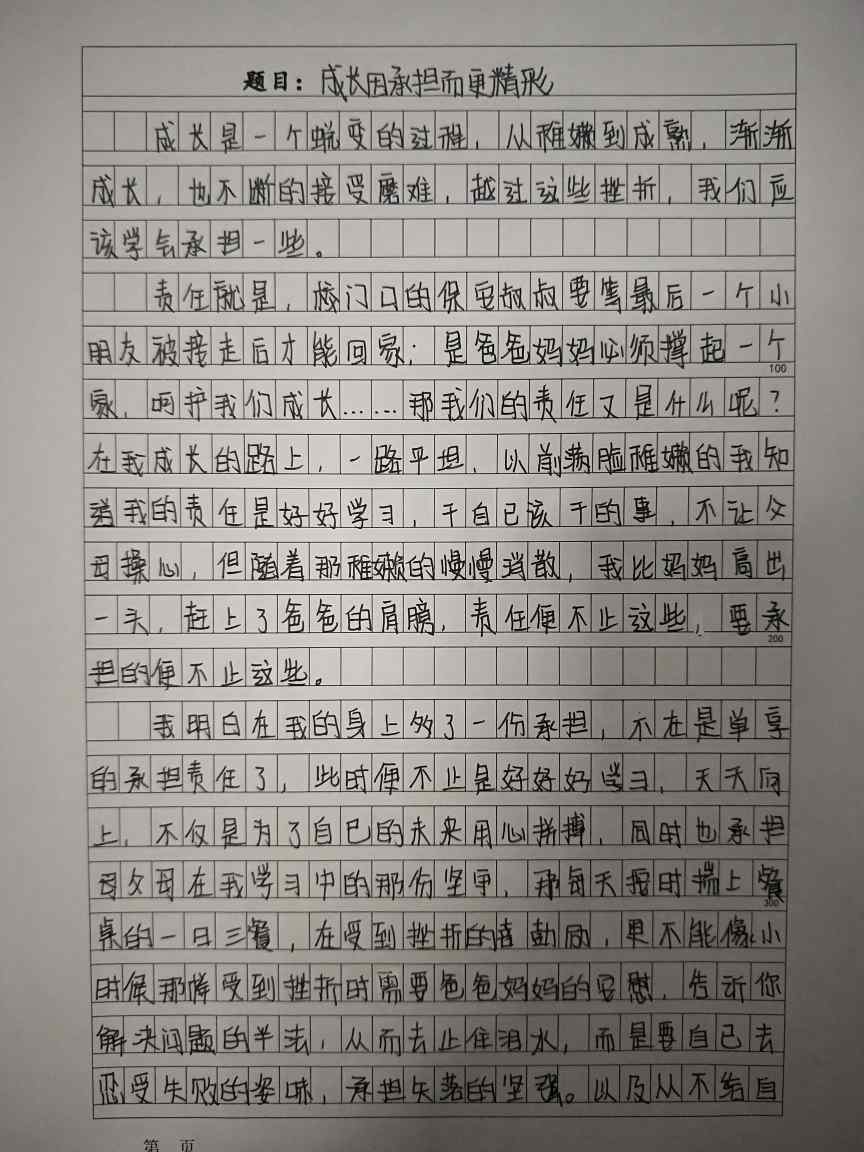 题目：成长因承担而更精彩
成长是一个蜕变的过程，从稚嫩到成熟，渐渐
成长，也不断的接受磨难，越过这些挫折，我们应
该学会承担一些。
责任就是，校门口的保安叔叔要等最后一个小
朋友被接走后才能回家；是爸爸妈妈必须撑起一个
100
家，呵护我们成长……那我们的责任又是什么呢？
在我成长的路上，一路平坦，以前满脸稚嫩的我知
道我的责任是好好学习，干自己该干的事，不让父
母操心，但随着那稚嫩的慢慢消散，我比妈妈高出
一头，赶上了爸爸的肩膀，责任便不止这些，要承
200
担的便不止这些。
我明白在我的身上多了一份承担，不在是单享
的承担责任了，此时便不止是好好好学习，天天向
上，不仅是为了自己的未来用心拼搏，同时也承担
母父母在我学习中的那份坚更，那每天按时端上餐
300
桌的一日三餐，在受到挫折的喜励，更不能像小
时候那样受到挫折时需要爸爸妈妈的安慰，告诉你
解决问题的半法，从而去止住泪水，而是要自己去
忍受失败的姿味，承担失落的坚强。以及从不给自
第 页